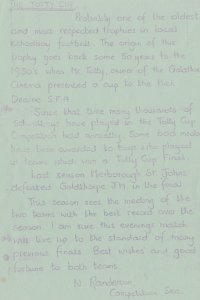 THE TOTTY CUP
Probably one of the oldest
and most respected trophies in local
schoolboy football. The origin of this
trophy goes back some 50 years to the
1930's when Mr Totty, owner of the Goldthorpe
Cinema presented a cup to the then
Dearne S.F.A.
Since that time many thousands of
schoolboys have played in the Totty Cup
Competition held annually. Some 600 medals
have been awarded to boys who played
in teams which won a Totty Cup Final.
Last season Mexborough St. Johns
defeated Goldthorpe J.M. in the final.
This season sees the meeting of the
two teams with the best record over the
season. I am sure this evenings match
will live up to the standard of many
previous finals. Best wishes and good
fortune to both teams.
N. Randerson
Competition Sec.